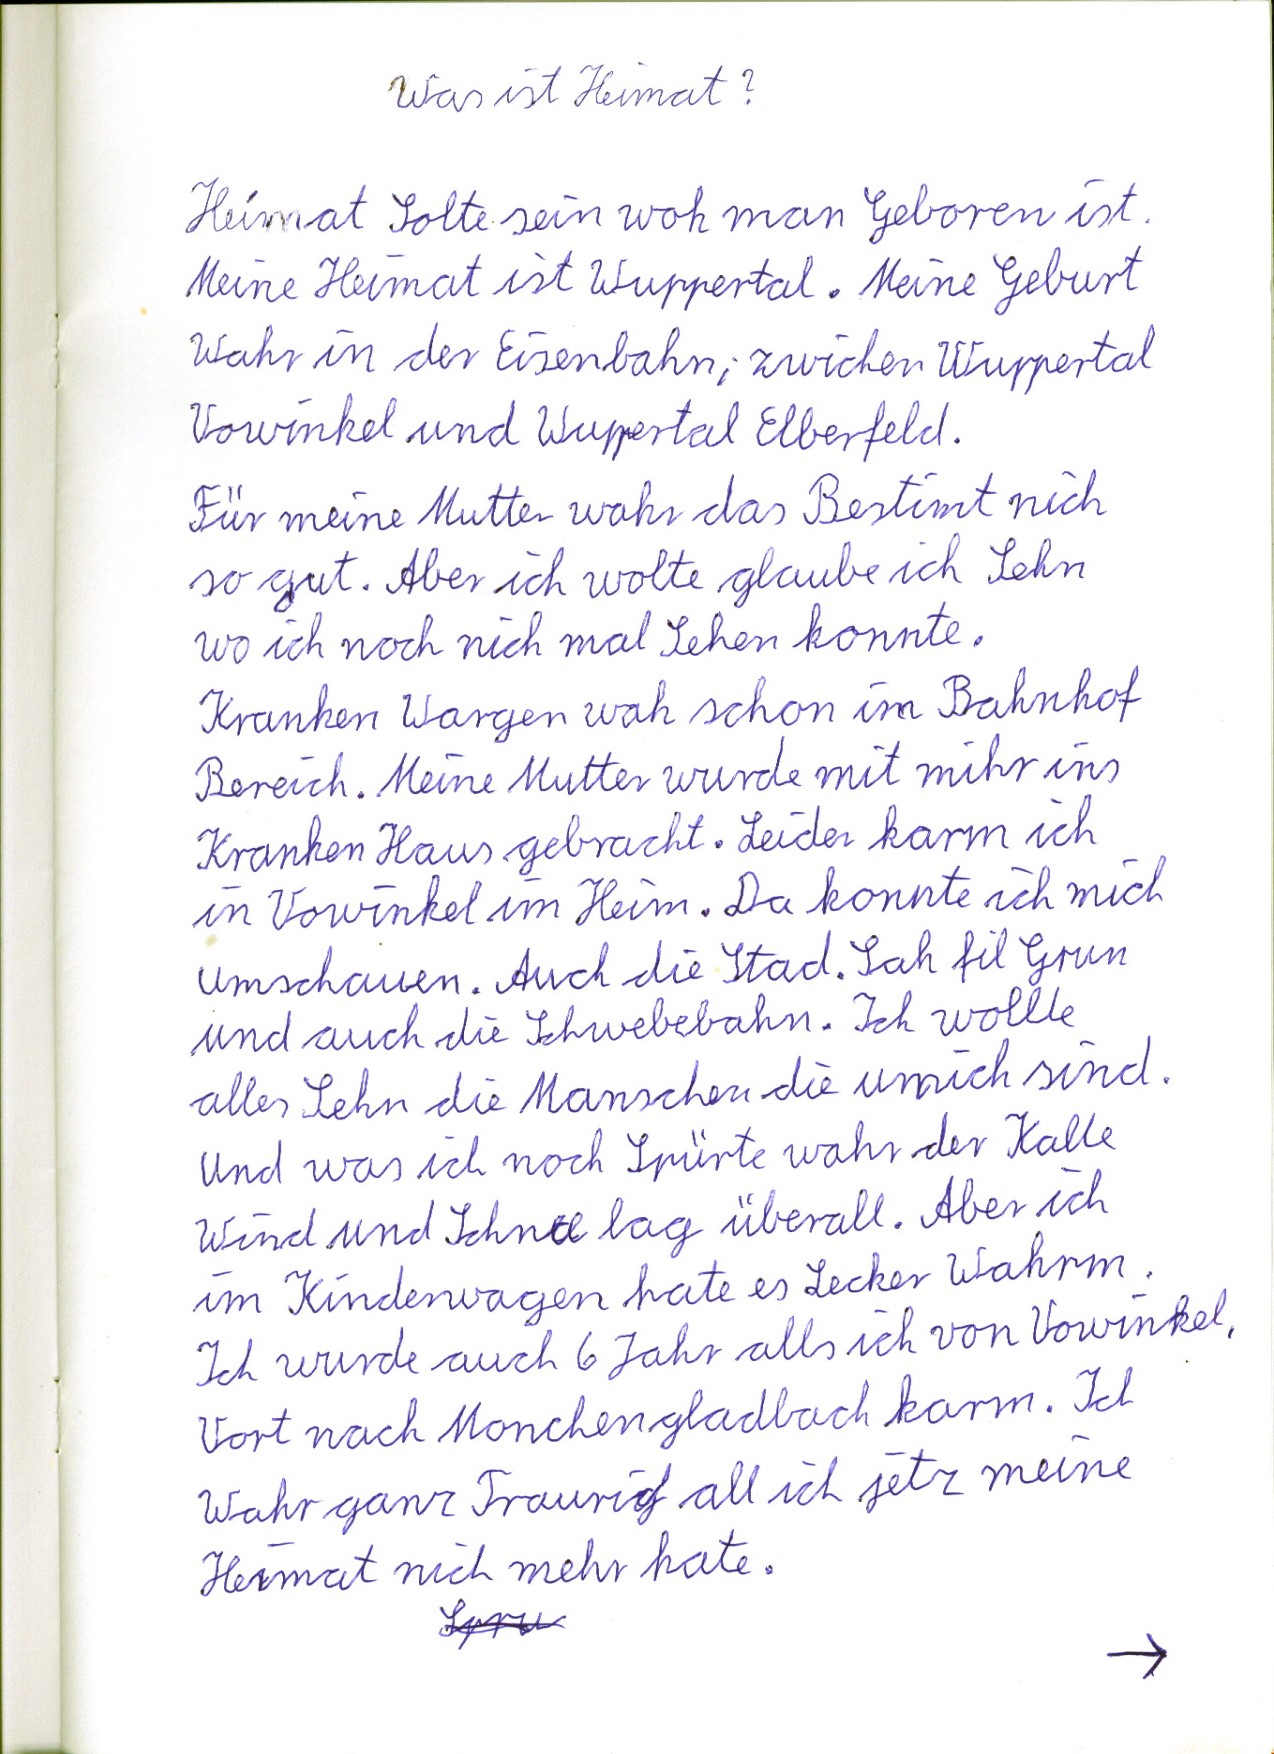 Was ist Heimat?
Heimat Solte sein woh man Geboren ist.
Meine Heimat ist Wuppertal. Meine Geburt
Wahr in der Eisenbahn, zwichen Wuppertal
Vowinkel und Wuppertal Elberfeld.
Für meine Mutter wahr das Bestimt nich
so gut. Aber ich wolte glaube ich Sehn
wo ich noch nich mal Sehen konnte.
Kranken Wargen wah schon im Bahnhof
Bereich. Meine Mutter wurde mit mihr ins
Kranken Haus gebracht. Leider karm ich
in Vowinkel im Heim. Da konnte ich mich
umschauen. Auch die Stad. Sah fil Grun
und auch die Schwebebahn. Ich wollte
alles Sehn die Manschen die umich sind.
Und was ich noch Spürte wahr der Kalte
Wind und Schnee lag überall. Aber ich
im Kinderwagen hate es Lecker Wahrm.
Ich wurde auch 6 Jahr alls ich von Vowinkel,
Vort nach Monchengladbach karm. Ich
Wahr ganz Traurig all ich jetz meine
Heimat nich mehr hate.
→